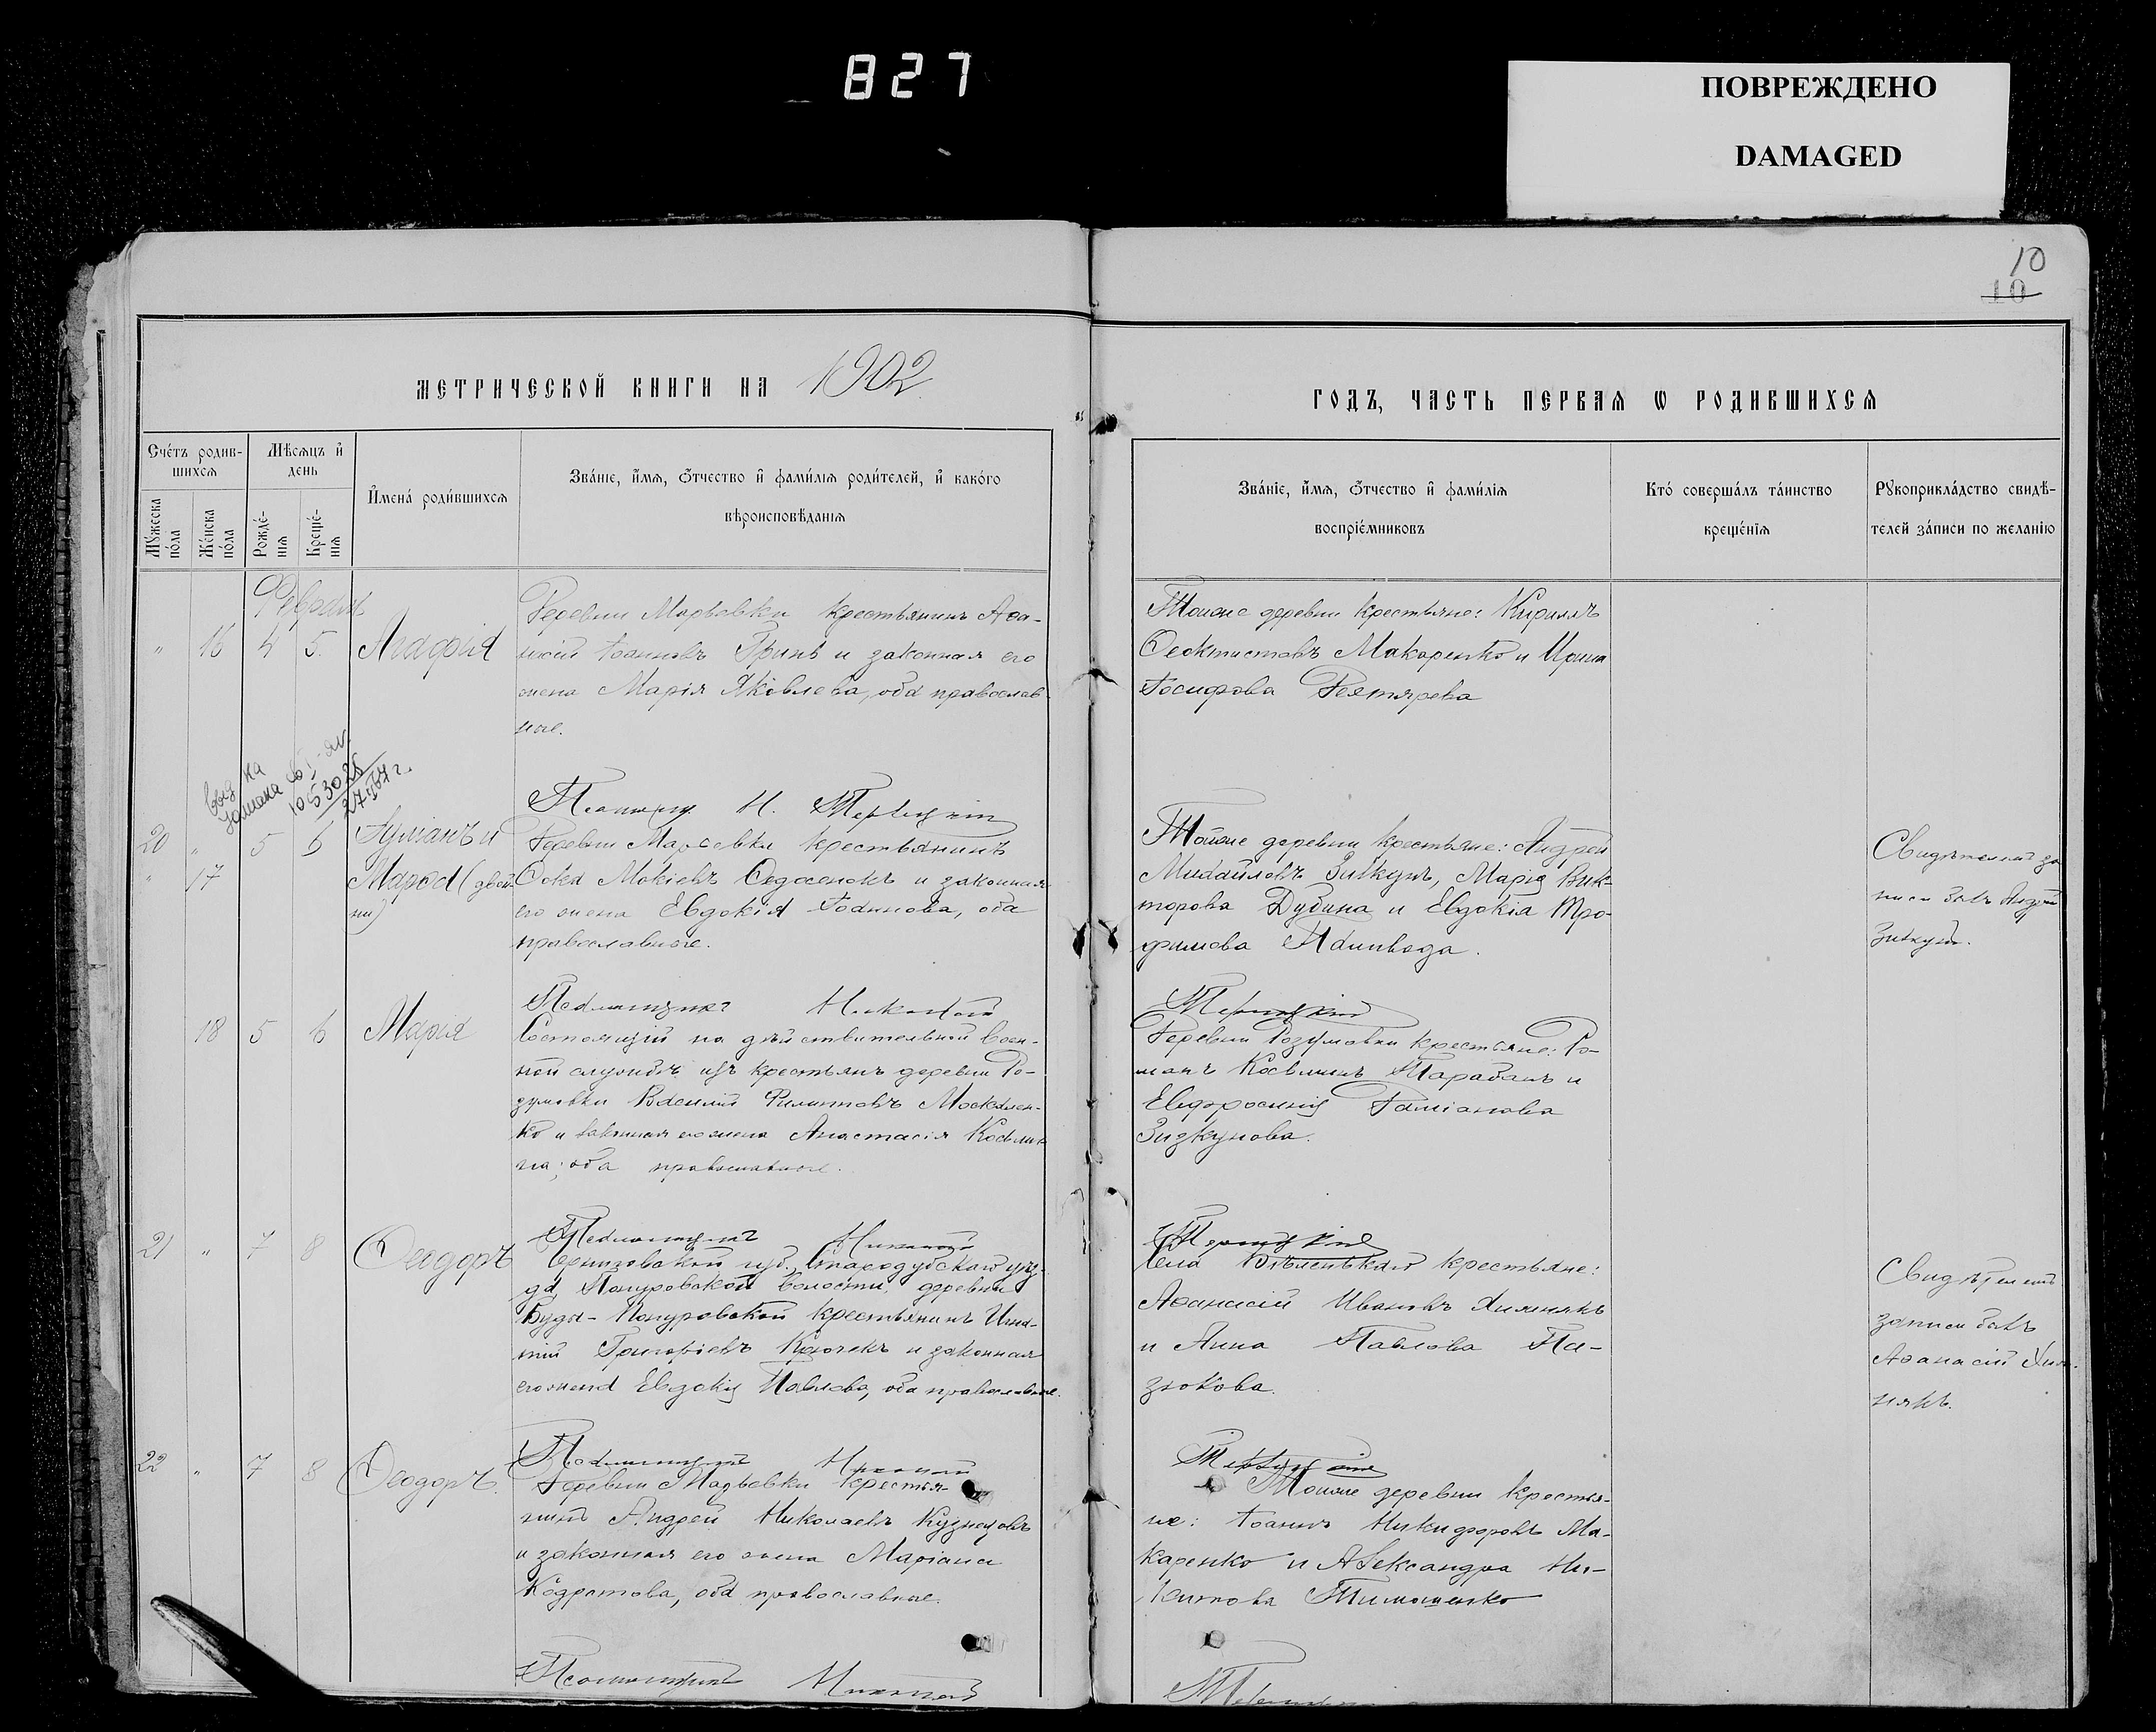 827
ПОВРЕЖДЕНО
DAMAGED
10
10
МЕТРИЧЕСКОЙ КНИГИ НА 1902
ГОДЪ, ЧАСТЬ ПЕРВАЯ Ѡ РОДИВШИХСЯ
Счетъ родив-
шихся
Мѣсяцъ и
день
Мужеска
пола
Женска
пола
Рожде-
нія
Креще-
нія
Имена родившихся
Званіе, имя, отчество и фамилія родителей, и какого
вѣроисповѣданія
Званіе, имя, отчество и фамилія
воспріемниковъ
Кто совершалъ таинство
крещенія
Рукоприкладство свидѣ-
телей записи по желанію
Февраля
" 16 4 5. Агафія
Деревни Марьевки крестьянинъ Аѳа-
насій Іоанновъ Гринь и законная его
жена Марія Яковлева, оба православ-
ные.
Тойже деревни крестьяне: Кириллъ
Ѳеоктистовъ Макаренко и Ирина
Іосифова Дехтярева
Псаломщ. Н.
20 " 5 6
" 17
и
Марѳа (двой-
ни)
Деревни крестьянинъ
Мокіевъ и законная
его жена Евдокія, оба
православные.
Тойже деревни крестьяне: Андрей
Михайловъ Зинкунъ, Марія Вик-
торова Дубина и Евдокія Тро-
фимова
Свидѣтелемъ за-
писи былъ Андрей
18 5 6 Марія
Псаломщикъ Николай
Состоящій на дѣйствительной воен-
ной службѣ изъ крестьянъ деревни Ро-
зумовки Василій Филипповъ Москален-
ко и законная его жена Анастасія Косьми-
на, оба православные.
Деревни Розумовки крестьяне: Ро-
манъ Косьминъ Тарабанъ и
Евфросинія Даміанова
21 " 7 8 Ѳеодоръ
Псаломщикъ Николай
Черниговской губ., Стародубскаго уѣз-
да, Понуровской волости, деревни
Буды-Понуровской крестьянинъ Игна-
тій Григорьевъ и законная
его жена Евдокія Павлова, оба православные.
Села крестьяне:
Аѳанасій Ивановъ Химнякъ
и Анна Павлова Па-
зюкова.
Свидѣтелемъ
записи былъ
Аѳанасій Хим-
някъ.
22 " 7 8 Ѳеодоръ.
Псаломщикъ Николай
Деревни крестья-
нинъ Андрей Николаевъ Кузнецовъ
и законная его жена Маріана
Кодратова, оба православные.
Тойже деревни крестья-
не: Іоаннъ Никифоровъ Ма-
каренко и Александра Ни-
китова Тимошенко
Псаломщикъ Николай